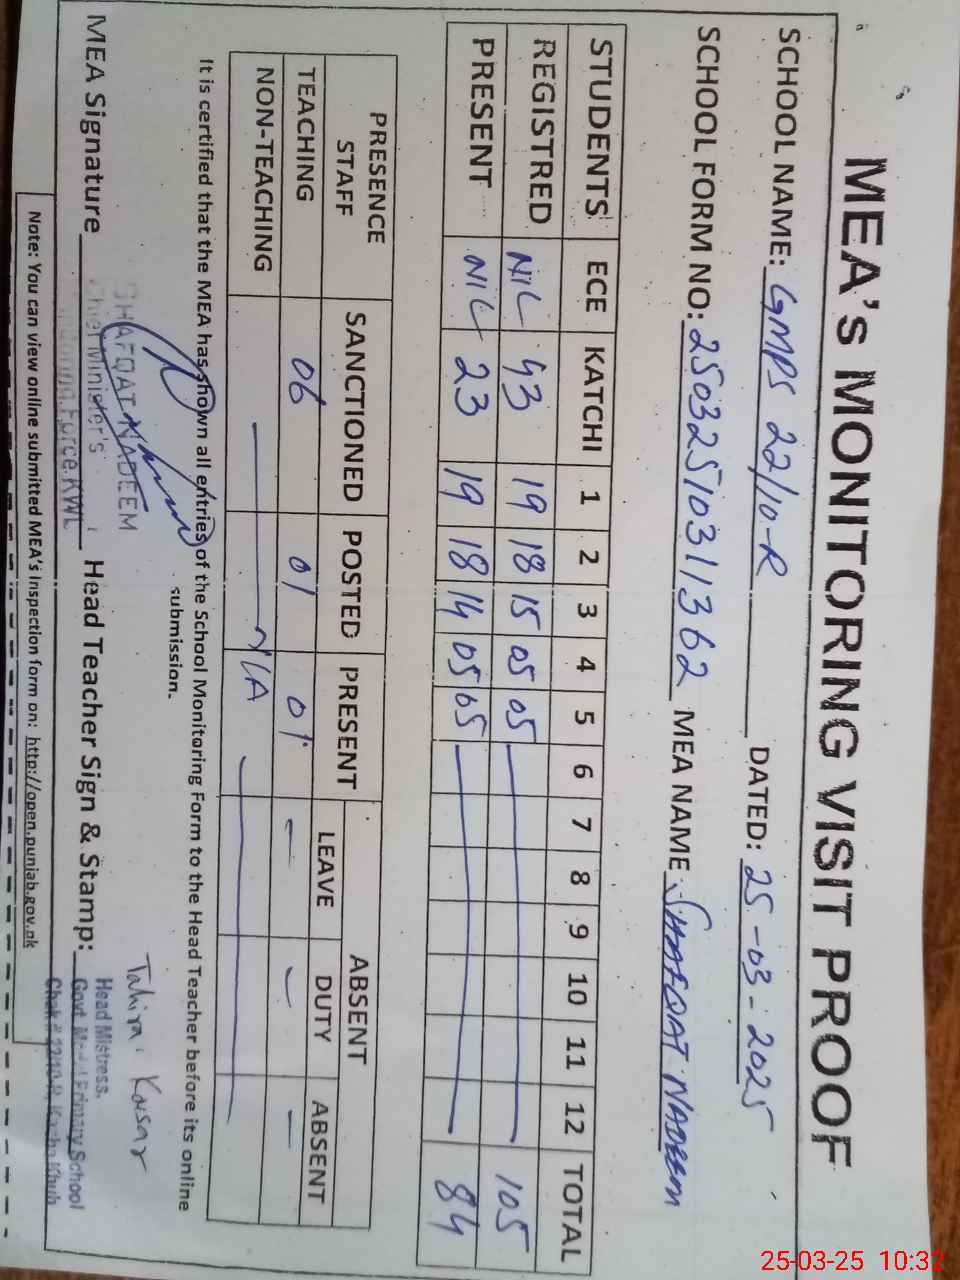 MEA's MONITORING VISIT PROOF
SCHOOL NAME: GMPS 22/10-R DATED: 25-03-2025
SCHOOL FORM NO: 25032510311362 MEA NAME SHAFQAT NADEEM
STUDENTS ECE KATCHI 1 2 3 4 5 6 7 8 9 10 11 12 TOTAL
REGISTRED NIL 43 19 18 15 05 05 105
PRESENT NIL 23 19 18 14 05 05 84
PRESENCE STAFF SANCTIONED POSTED PRESENT ABSENT
LEAVE DUTY ABSENT
TEACHING 06 01 01 - - -
NON-TEACHING N/A
It is certified that the MEA has shown all entries of the School Monitoring Form to the Head Teacher before its online
submission.
Tahira Kousar
SHAFQAT NADEEM
MEA Signature Chief Minister's Head Teacher Sign & Stamp: Head Mistress.
Monitoring Force KWL Govt. Model Primary School
Chak # 22/10-R, Kacha Khuh
Note: You can view online submitted MEA's Inspection form on: http://open.punjab.gov.pk
25-03-25 10:32